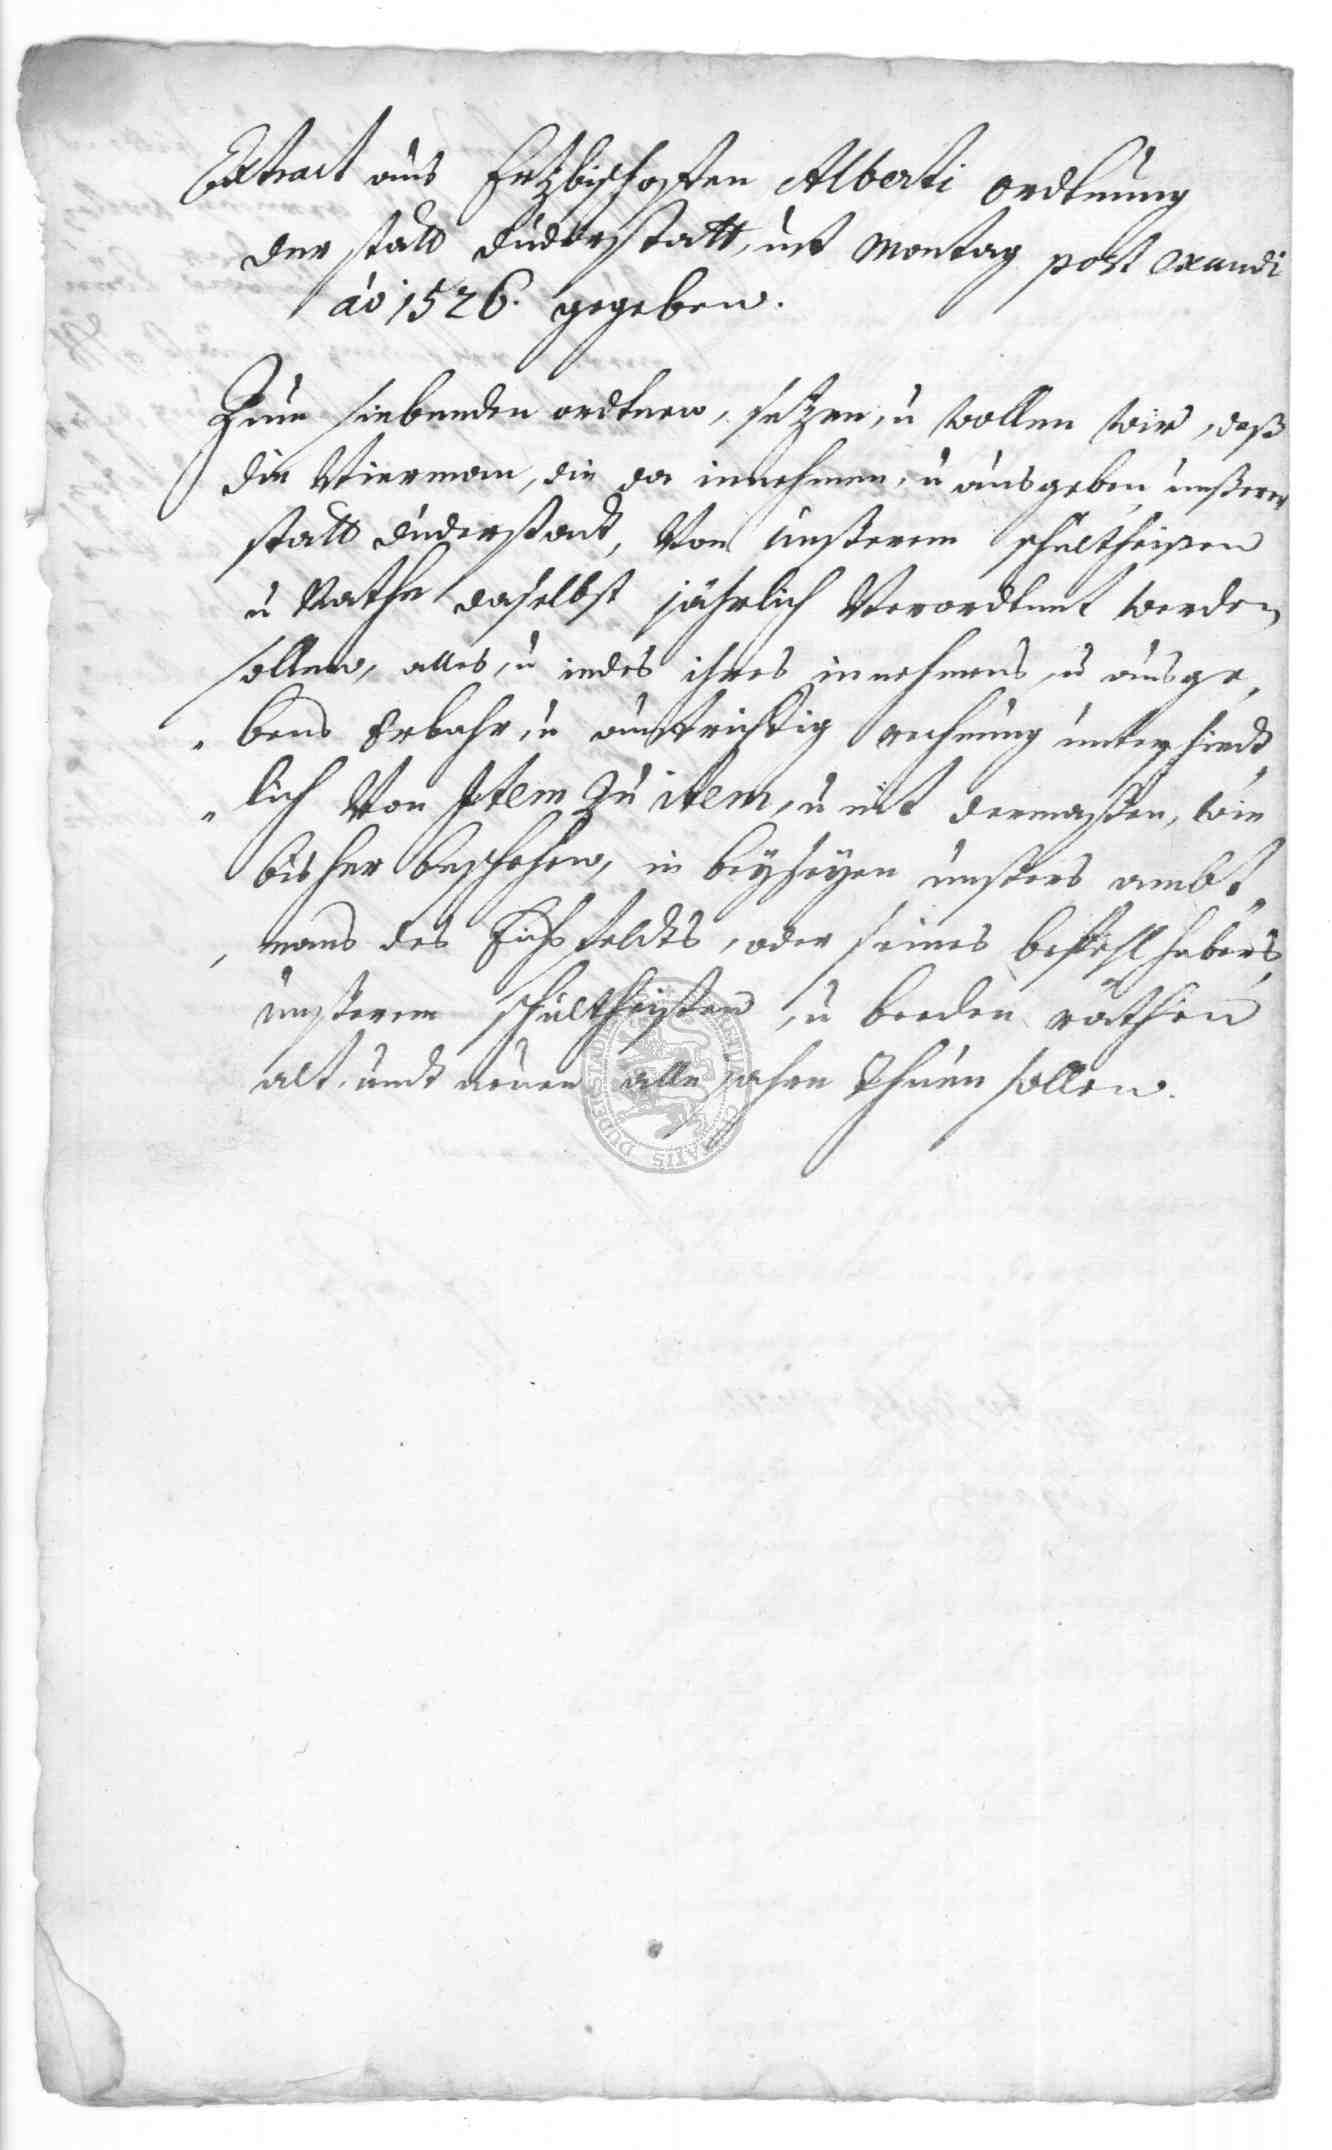 Extract aus Ertzbischoffen Alberti ordtnung
der statt Duderstatt, uf Montag post Exaudi
ao 1526. gegeben.
Zum siebenden ordtnen, setzen, u wollen wir, daß
die Vierman, die da innehmen, u ausgeben unßerer
statt Duderstadt, Von unßerem schultheißen
u Rathe daselbst jährlich Verordtnet werden
sollen, alles, u iedes ihres innehmens, u ausge„
„bens Erbahr, u aufrichtig rechnung unterschiedt„
„lich Von Item zu item, u nit dermaßen, wie
bisher beschehen, in beyseyen unßers ambt„
„mans des Eichsfeldts, oder seines befehlhabers,
unßerem schultheißen, u beeden räthen
alt, undt neuen alle jahre thuen sollen.
DUDERSTADE